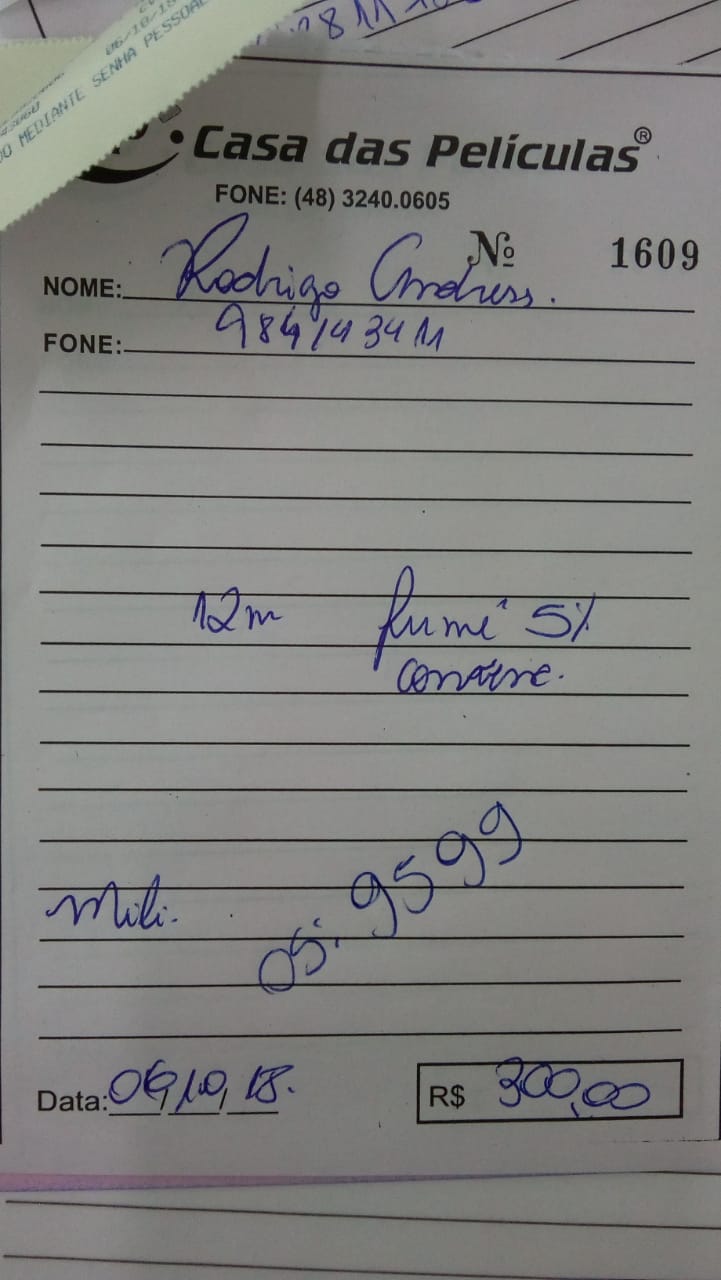 2811
06/10/18
DO MEDIANTE SENHA PESSOAL
Casa das Películas®
FONE: (48) 3240.0605
Nº 1609
NOME: Rodrigo Andress.
FONE: 984143411
12m fumê 5%
Mili.
OS: 9599
Data: 06/10/18.
R$ 300,00